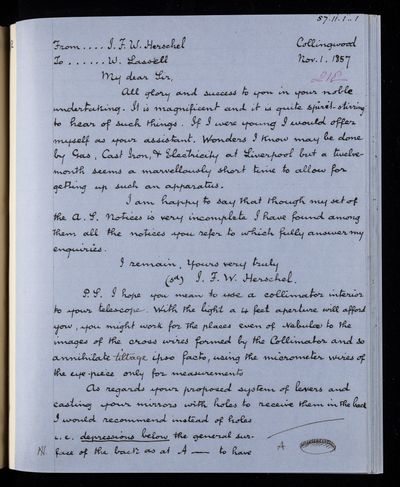 57.11.1..1
From.... J. F. W. Herschel Collingwood
To....... W. Lassell Nov. 1. 1857
My dear Sir,
All glory and success to you in your noble
undertaking. It is magnificent and it is quite spirit-stirring
to hear of such things. If I were young I would offer
myself as your assistant. Wonders I know may be done
by Gas, Cast Iron, & Electricity at Liverpool but a twelve-
month seems a marvellously short time to allow for
getting up such an apparatus.
I am happy to say that though my set of
the A. S. Notices is very incomplete I have found among
them all the notices you refer to which fully answer my
enquiries.
I remain, Yours very truly
(sd) J. F. W. Herschel.
P.S. I hope you mean to use a collimator interior
to your telescope. With the light a 4 feet aperture will afford
you, you might work for the places even of Nebulæ to the
images of the cross wires formed by the Collimator and so
annihilate tiltage ipso facto, using the micrometer wires of
the eye-piece only for measurements
As regards your proposed system of levers and
casting your mirrors with holes to receive them in the back
I would recommend instead of holes
i.e. depressions below the general sur-
face of the back as at A — to have
A